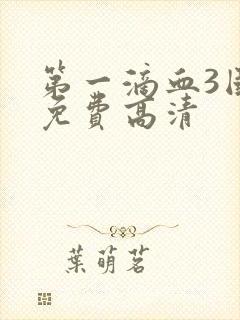 第一滴血3国
免費高清
葉萌茗